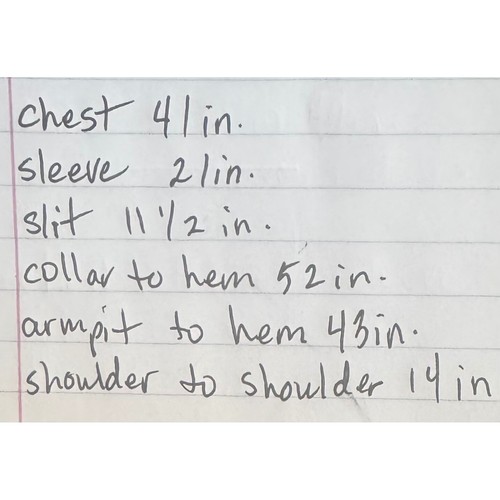 chest 41 in.
sleeve 21in.
slit 11 1/2 in.
collar to hem 52 in.
armpit to hem 43in.
shoulder to shoulder 14 in